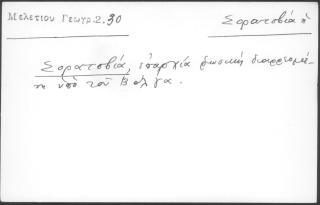 Μελετίου Γεωγρ.2.30
Σαρατοβία ἡ
Σαρατοβία, ἐπαρχία ῥωσική διαρρεομέ-
νη ὑπὸ τοῦ Βόλγα.